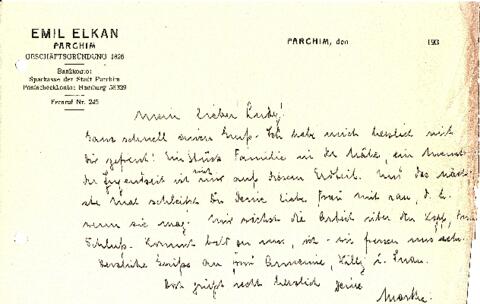 EMIL ELKAN
PARCHIM
GESCHÄFTSGRÜNDUNG 1826
Bankkonto:
Sparkasse der Stadt Parchim
Postscheckkonto: Hamburg
Fernruf Nr. 245
PARCHIM, den 193
Mein lieber
Ganz schnell einen Gruß. Ich habe mich herzlich mit
Dir gefreut! Ein Stück Familie in der Nähe, ein
der Jugendzeit ist mir auf diesem Erdteil. Und das näch-
ste Mal Du Deine liebe Frau mit ran, d. h.
wenn sie mag. Mir wächst die Arbeit über den Kopf,
Schluß. Kommt bald zu uns, ich - wir freuen uns sehr.
Herzliche Grüße an
grüßt recht herzlich Deine